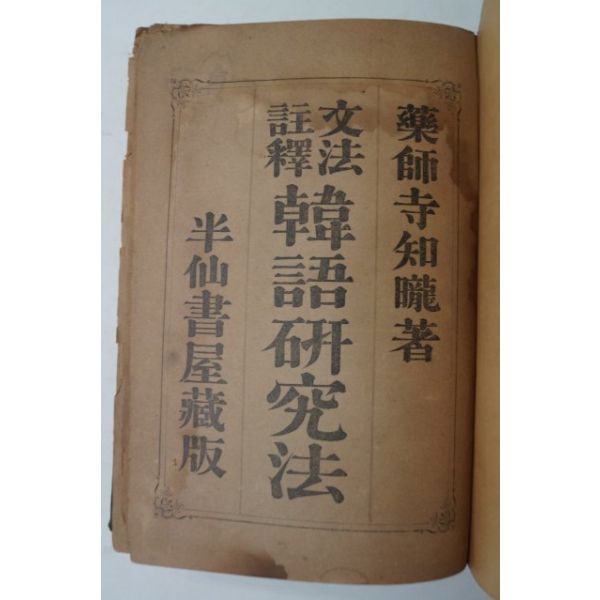 藥師寺知曨著
文法
註釋
韓語硏究法
半仙書屋藏版